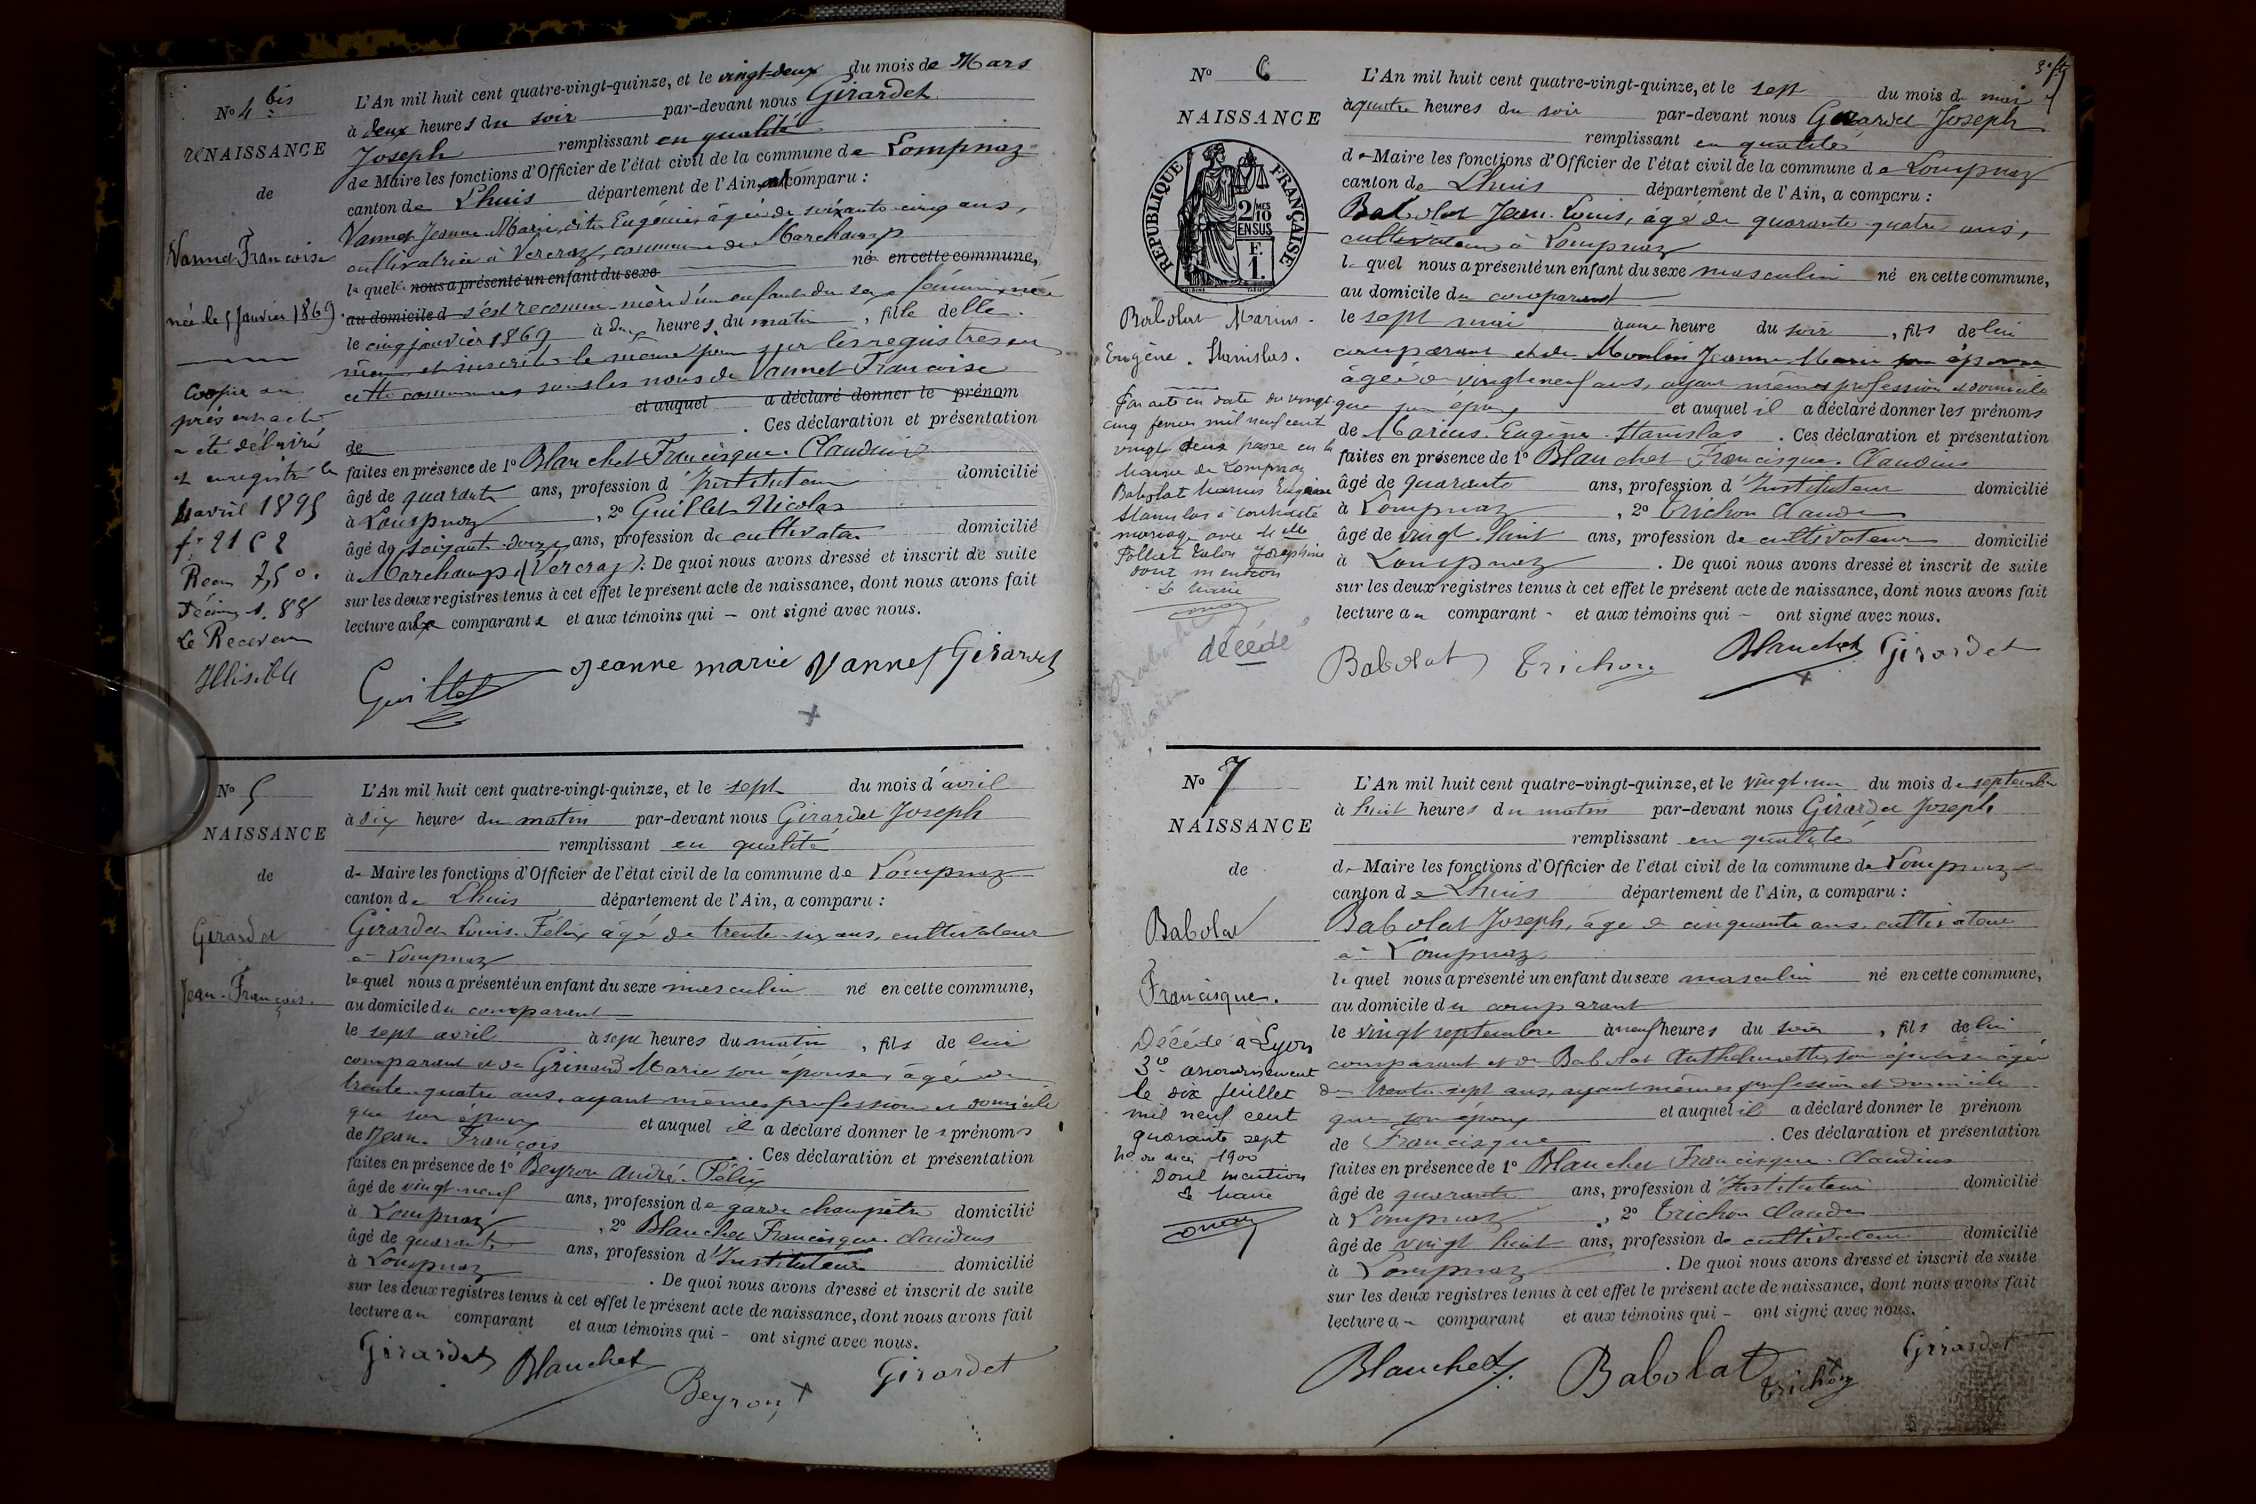 No 4 bis
reNAISSANCE
de
Vannet Francoise
née le 5 Janvier 1869.
Copie
près extrait
a été délivré
et enregistré le
4 avril 1895
fo 91 C 2
Recu 7,50.
Décimes 1.88
Le Receveur
Illisible
L'An mil huit cent quatre-vingt-quinze, et le vingt-deux du mois de Mars
à deux heures du soir par-devant nous Girardet
Joseph remplissant en qualité
de Maire les fonctions d'Officier de l'état civil de la commune de Lompnaz
canton de Lhuis département de l'Ain, a comparu :
Vannet Jeanne Marie, dite Eugénie, âgée de soixante cinq ans,
cultivatrice à Vercraz, commune de Marchamp
laquelle nous a présenté un enfant du sexe né en cette commune,
au domicile d s'est reconnue mère d'un enfant du sexe féminin, née
le cinq janvier 1869 à deux heures du matin, fille d'elle
même et inscrite le même jour sur les registres en
cette commune sous les noms de Vannet Francoise
et auquel a déclaré donner le prénom
de . Ces déclaration et présentation
faites en présence de 1o Blanchet Francisque Claudius
âgé de quarante ans, profession d'Instituteur domicilié
à Lompnaz, 2o Guillet Nicolas
âgé de soixante douze ans, profession de cultivateur domicilié
à Marchamp (Vercraz). De quoi nous avons dressé et inscrit de suite
sur les deux registres tenus à cet effet le présent acte de naissance, dont nous avons fait
lecture à la comparante et aux témoins qui – ont signé avec nous.
Guillet Jeanne marie Vannet Girardet
No 5
NAISSANCE
de
Girardet
Jean-François.
L'An mil huit cent quatre-vingt-quinze, et le sept du mois d'avril
à six heures du matin par-devant nous Girardet Joseph
remplissant en qualité
de Maire les fonctions d'Officier de l'état civil de la commune de Lompnaz
canton de Lhuis département de l'Ain, a comparu :
Girardet Louis-Félix âgé de trente-six ans, cultivateur
à Lompnaz
lequel nous a présenté un enfant du sexe masculin né en cette commune,
au domicile du comparant
le sept avril à sept heures du matin, fils de lui
comparant et de Grinand Marie son épouse, âgée de
trente-quatre ans, ayant mêmes profession et domicile
que son époux et auquel il a déclaré donner les prénoms
de Jean-François . Ces déclaration et présentation
faites en présence de 1o Beyron André-Félix
âgé de vingt-neuf ans, profession de garde champêtre domicilié
à Lompnaz, 2o Blanchet Francisque Claudius
âgé de quarante ans, profession d'Instituteur domicilié
à Lompnaz . De quoi nous avons dressé et inscrit de suite
sur les deux registres tenus à cet effet le présent acte de naissance, dont nous avons fait
lecture au comparant et aux témoins qui – ont signé avec nous.
Girardet Blanchet Beyron Girardet
No 6
NAISSANCE
REPUBLIQUE FRANÇAISE
2/10 MES
EN SUS
F.
1.
Babolat Marius-
Eugène. Stanislas.
Par acte en date du vingt
cinq fevrier mil neuf cent
vingt deux passé en la
Mairie de Lompnaz
Babolat Marius Eugène
Stanislas a contracté
mariage avec Melle
Josephine
dont mention
Le Maire
décédé
L'An mil huit cent quatre-vingt-quinze, et le sept du mois de mai
à quatre heures du soir par-devant nous Girardet Joseph
remplissant en qualité
de Maire les fonctions d'Officier de l'état civil de la commune de Lompnaz
canton de Lhuis département de l'Ain, a comparu :
Babolat Jean-Louis, âgé de quarante-quatre ans,
cultivateur à Lompnaz
lequel nous a présenté un enfant du sexe masculin né en cette commune,
au domicile du comparant
le sept mai à une heure du soir, fils de lui
comparant et de Moulin Jeanne-Marie son épouse
âgée de vingt-neuf ans, ayant mêmes profession et domicile
que son époux et auquel il a déclaré donner les prénoms
de Marius-Eugène-Stanislas . Ces déclaration et présentation
faites en présence de 1o Blanchet Francisque-Claudius
âgé de quarante ans, profession d'Instituteur domicilié
à Lompnaz, 2o Trichon Claude
âgé de vingt-huit ans, profession de cultivateur domicilié
à Lompnaz . De quoi nous avons dressé et inscrit de suite
sur les deux registres tenus à cet effet le présent acte de naissance, dont nous avons fait
lecture au comparant et aux témoins qui – ont signé avec nous.
Babolat Trichon Blanchet Girardet
No 7
NAISSANCE
de
Babolat
Francisque.
Décédé à Lyon
3e arrondissement
le six Juillet
mil neuf cent
quarante sept
1900
Dont mention
Le Maire
L'An mil huit cent quatre-vingt-quinze, et le vingt-un du mois de septembre
à huit heures du matin par-devant nous Girardet Joseph
remplissant en qualité
de Maire les fonctions d'Officier de l'état civil de la commune de Lompnaz
canton de Lhuis département de l'Ain, a comparu :
Babolat Joseph, âgé de cinquante ans, cultivateur
à Lompnaz
lequel nous a présenté un enfant du sexe masculin né en cette commune,
au domicile du comparant
le vingt septembre à neuf heures du soir, fils de lui
comparant et de Babolat Anthelmette, son épouse âgée
de trente-sept ans, ayant mêmes profession et domicile
que son époux et auquel il a déclaré donner le prénom
de Francisque . Ces déclaration et présentation
faites en présence de 1o Blanchet Francisque-Claudius
âgé de quarante ans, profession d'Instituteur domicilié
à Lompnaz, 2o Trichon Claude
âgé de vingt huit ans, profession de cultivateur domicilié
à Lompnaz . De quoi nous avons dressé et inscrit de suite
sur les deux registres tenus à cet effet le présent acte de naissance, dont nous avons fait
lecture au comparant et aux témoins qui – ont signé avec nous.
Blanchet Babolat Trichon Girardet